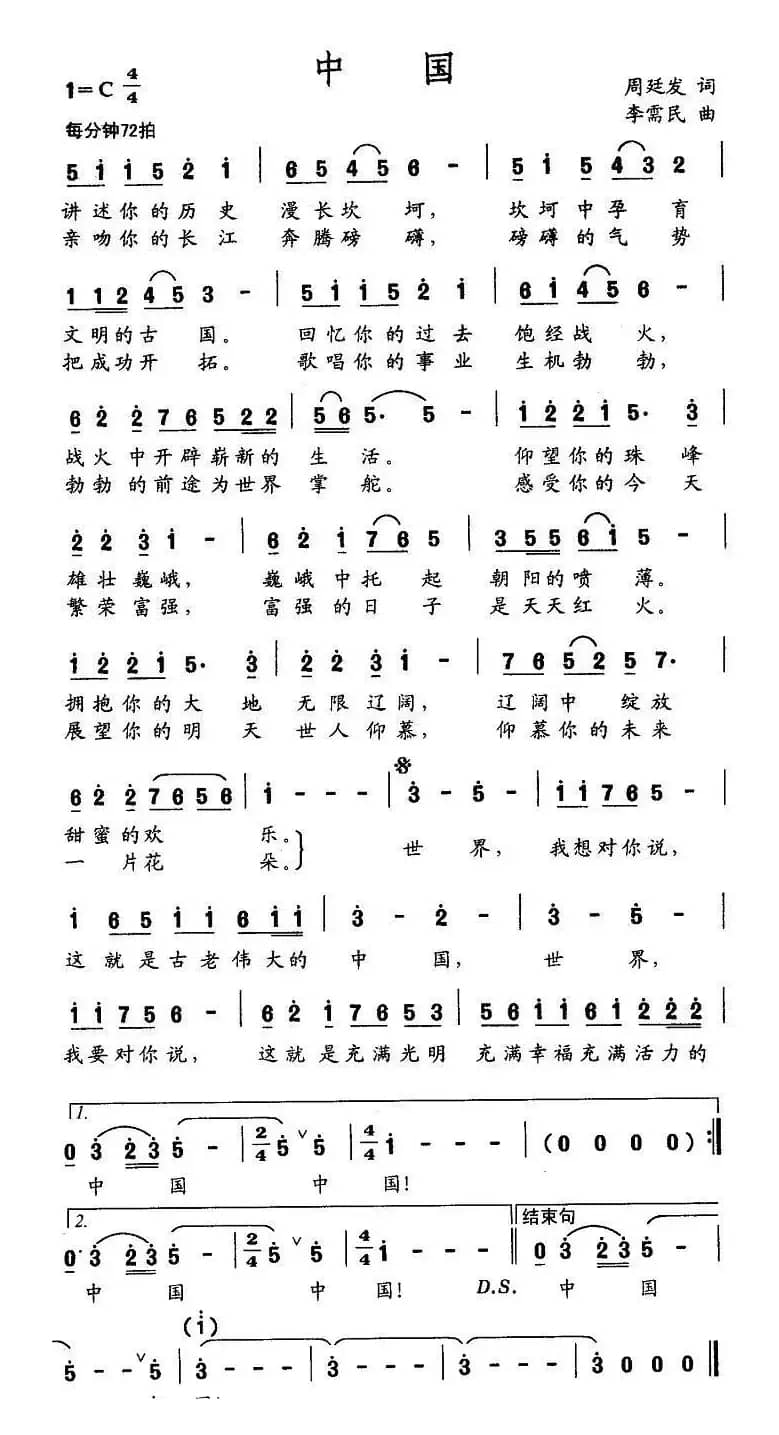 中 国
1=C 4/4
周廷发 词
李需民 曲
每分钟72拍
5 1 1 5 2 1 | 6 5 4 5 6 - | 5 1 5 4 3 2
讲述你的历史 漫长坎 坷, 坎坷中孕育
亲吻你的长江 奔腾磅 礴, 磅礴的气势
1 1 2 4 5 3 - | 5 1 1 5 2 1 | 6 1 4 5 6 - |
文明的古 国。 回忆你的过去 饱经战 火,
把成功开 拓。 歌唱你的事业 生机勃 勃,
6 2 2 7 6 5 2 2 | 5 6 5· 5 - | 1 2 2 1 5· 3 |
战火中开辟崭新的 生 活。 仰望你的珠峰
勃勃的前途为世界 掌 舵。 感受你的今天
2 2 3 1 - | 6 2 1 7 6 5 | 3 5 5 6 1 5 - |
雄壮巍峨, 巍峨中托 起 朝阳的喷 薄。
繁荣富强, 富强的日 子 是天天红 火。
1 2 2 1 5· 3 | 2 2 3 1 - | 7 6 5 2 5 7· |
拥抱你的大地 无限辽阔, 辽阔中 绽放
展望你的明天 世人仰慕, 仰慕你的未来
6 2 2 7 6 5 6 | 1 - - - | 3 - 5 - | 1 1 7 6 5 - |
甜蜜的欢 乐。 世 界, 我想对你说,
一 片花 朵。
1 6 5 1 1 6 1 1 | 3 - 2 - | 3 - 5 - |
这就是古老伟大的 中 国, 世 界,
1 1 7 5 6 - | 6 2 1 7 6 5 3 | 5 6 1 1 6 1 2 2 2 |
我要对你说, 这就是充满光明 充满幸福充满活力的
1.
0 3 2 3 5 - | 2/4 5 ∨ 5 | 4/4 1 - - - | (0 0 0 0) :‖
中 国 中 国!
2. 结束句
0· 3 2 3 5 - | 2/4 5 ∨ 5 | 4/4 1 - - - ‖ 0 3 2 3 5 - |
中 国 中 国! D.S. 中 国
(1)
5 - - ∨ 5 | 3 - - - | 3 - - - | 3 - - - | 3 0 0 0 ‖